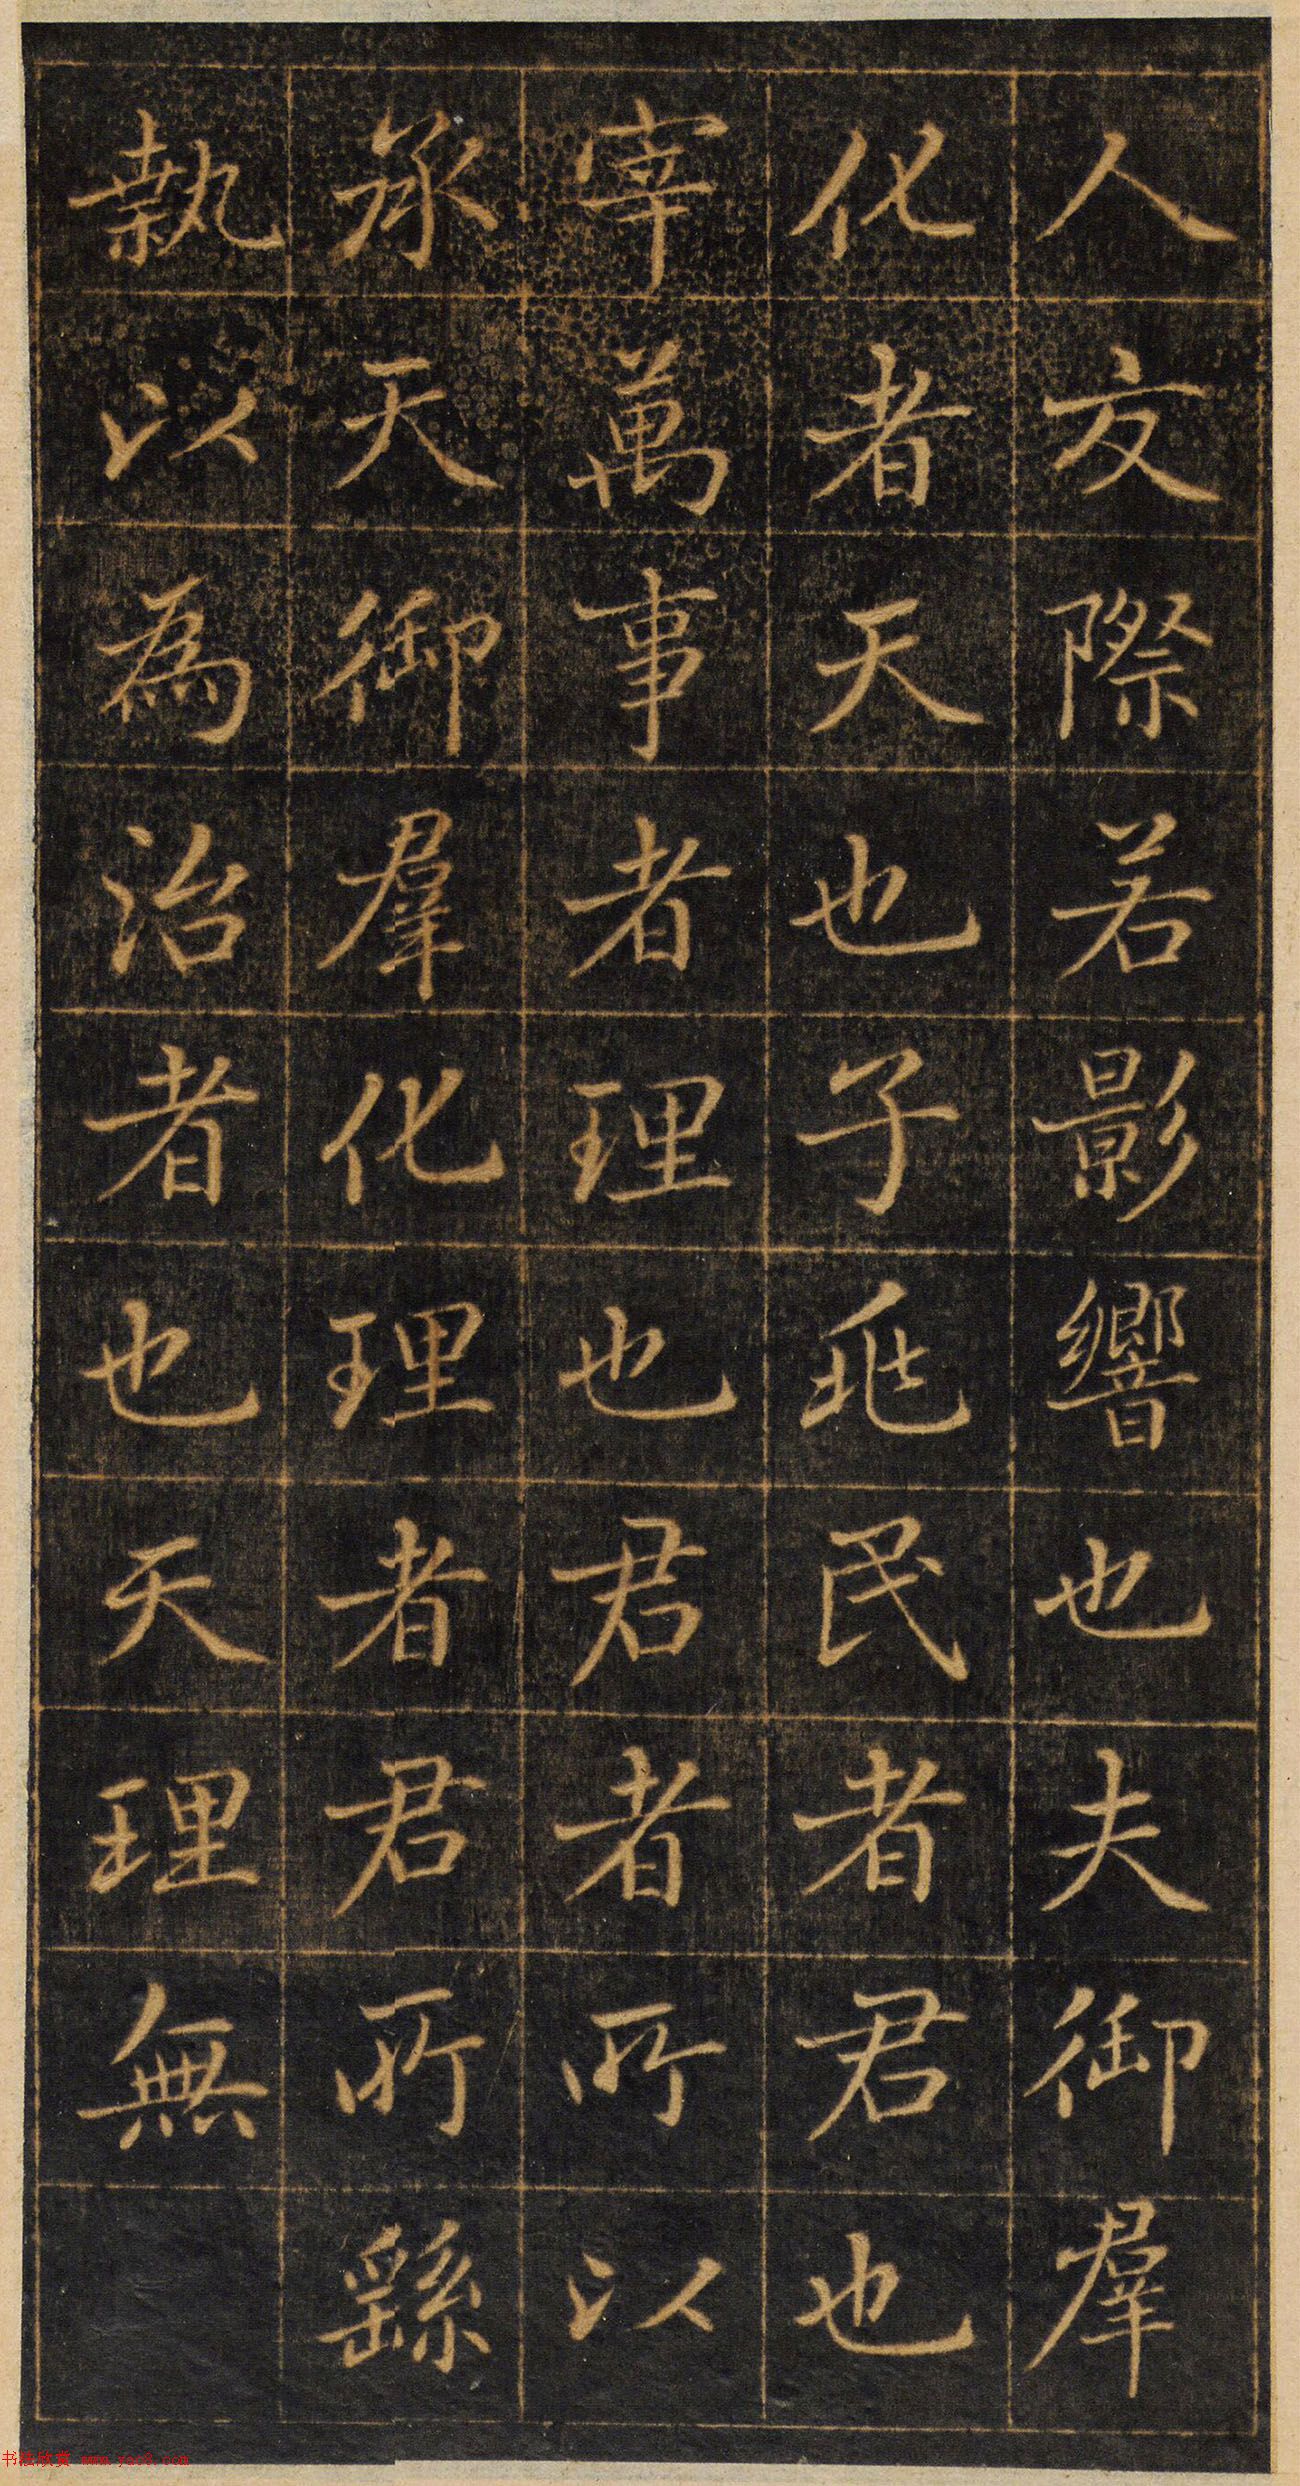 人交際若影響也夫御羣
化者天也子兆民者君也
宰萬事者理也君者所以
承天御羣化理者君所繇
執以為治者也天理無
书法欣赏 www.yac8.com